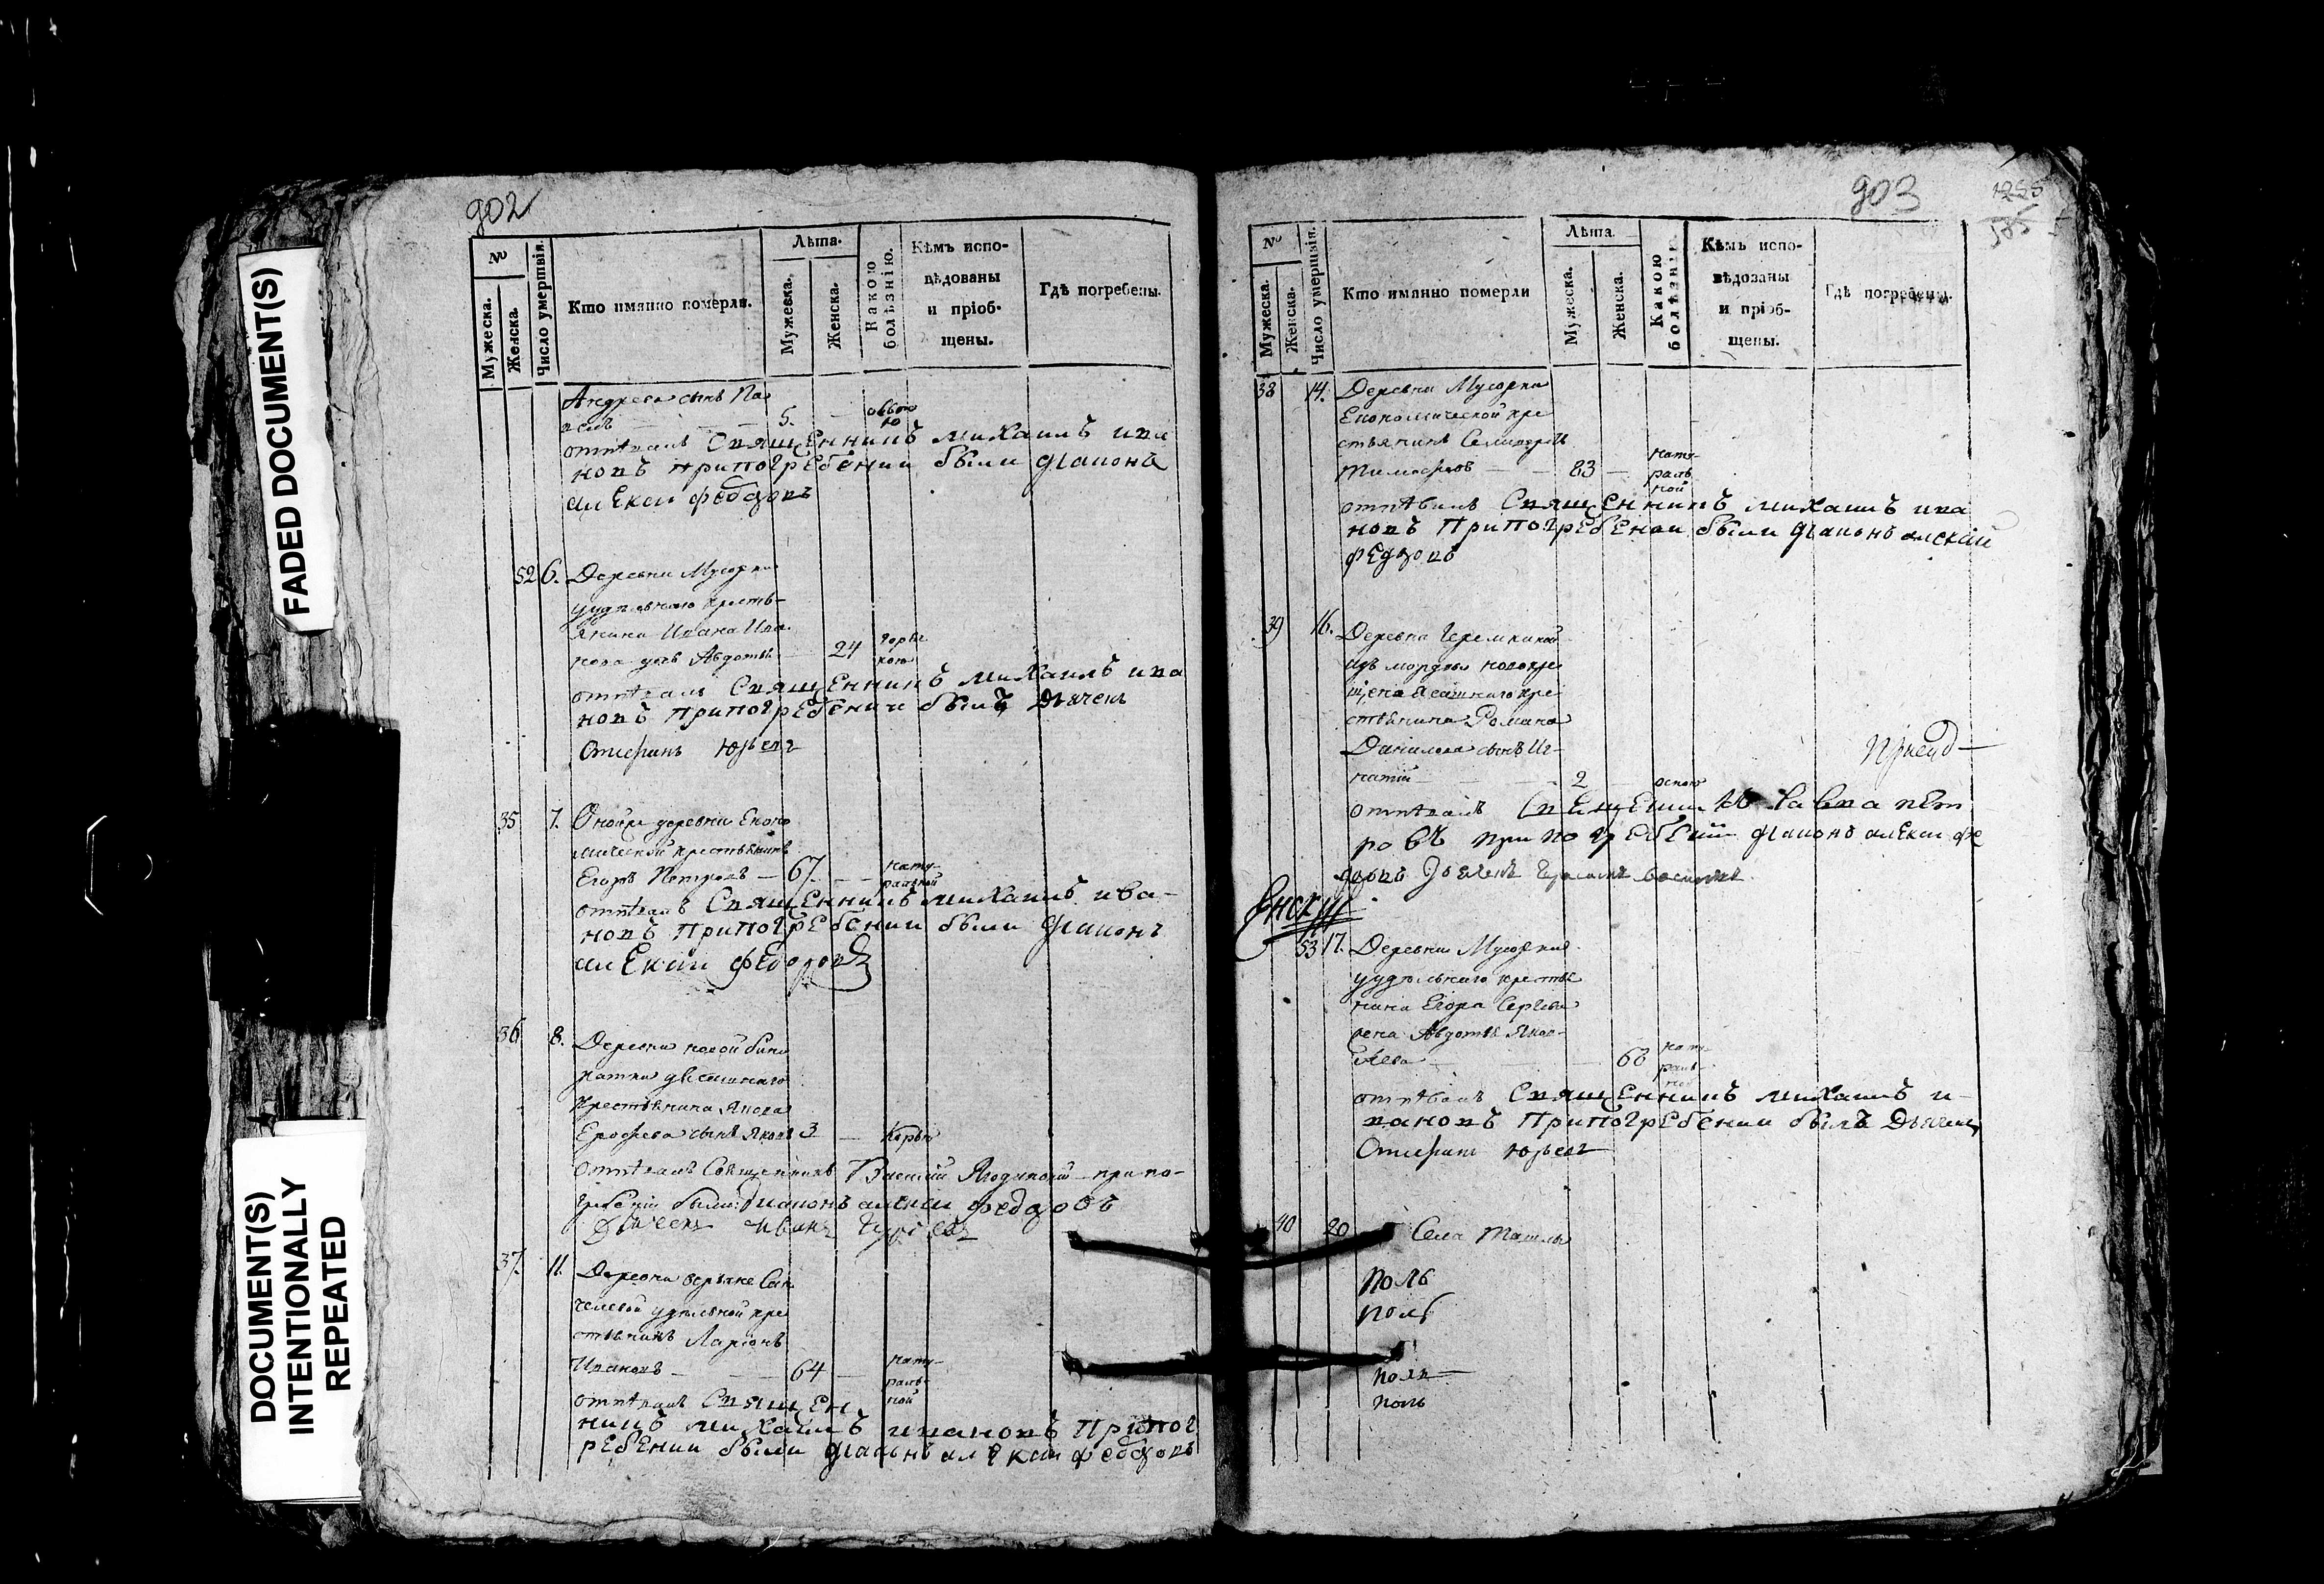 FADED DOCUMENT(S)
DOCUMENT(S)
INTENTIONALLY
REPEATED
902
№
Мужеска.
Женска.
Число умершвія.
Кто имянно померли.
Лѣта.
Мужеска.
Женска.
Какою
болѣзнію.
Кѣмъ испо-
вѣдованы
и пріоб-
щены.
Гдѣ погребены.
Андреева сынъ Па
велъ 5.
отпѣвалъ Священникъ михаилъ ива
новъ припогребении были диаконъ
алексѣи федоровъ
52 6. Деревни Мусорки
удѣльнаго кресть-
янина Ивана Ива
нова дочь Авдотья 24 горяч
кою
отпѣвалъ Священникъ михаилъ ива
новъ припогребении былъ дьячекъ
юрьевъ
35 7. Оной деревни Еконо
мической крестьянинъ
Егоръ Петровъ 67 нату-
ральной
отпѣвалъ Священникъ михаилъ ива-
новъ припогребении были диаконъ
алексѣи федоровъ
36 8. Деревни новой Бина
ратки
крестьянина Якова
Ерофеева сынъ Яковъ 3 Корью
отпѣвалъ Священникъ Василій Ягодинской при по-
гребеніи были: диаконъ алексѣи федоровъ
Дьячекъ иванъ
37. 11. Деревни верхне Сан
челеевой удѣльной кре
стьянинъ Ларіонъ
Ивановъ 64 нату-
раль-
ной
отпѣвалъ Священ
никъ михаилъ ивановъ припог
ребении были диаконъ алексѣи федоровъ
903
1255
585
№
Мужеска.
Женска.
Число умершвія.
Кто имянно померли
Лѣта
Мужеска.
Женска.
Какою
болѣзнію.
Кѣмъ испо-
вѣдованы
и пріоб-
щены.
Гдѣ погребены.
38 14. Деревни Мусорки
Економической кре
стьянинъ
Тимофеевъ 83 нату-
раль
ной
отпѣвалъ Священникъ михаилъ ива
новъ припогребении были диаконъ алексѣй
федоровъ
39 16. Деревни Черемшиной
изъ мордвы новокре
щена Ясашнаго кре
стьянина Романа
Данилова сынъ Иг-
натій 2 оспою
отпѣвалъ
петровъ при погребении диаконъ алексѣи фе
доровъ
53 17. Деревни Мусорки
удѣльнаго крестья
нина Егора Сергеева
жена Авдотья Яков-
лева 68 нату-
раль-
ной
отпѣвалъ Священникъ михаилъ и-
вановъ припогребении былъ дьячекъ
юрьевъ
40 20 Села Ташлы
поль
поль
поль
поль